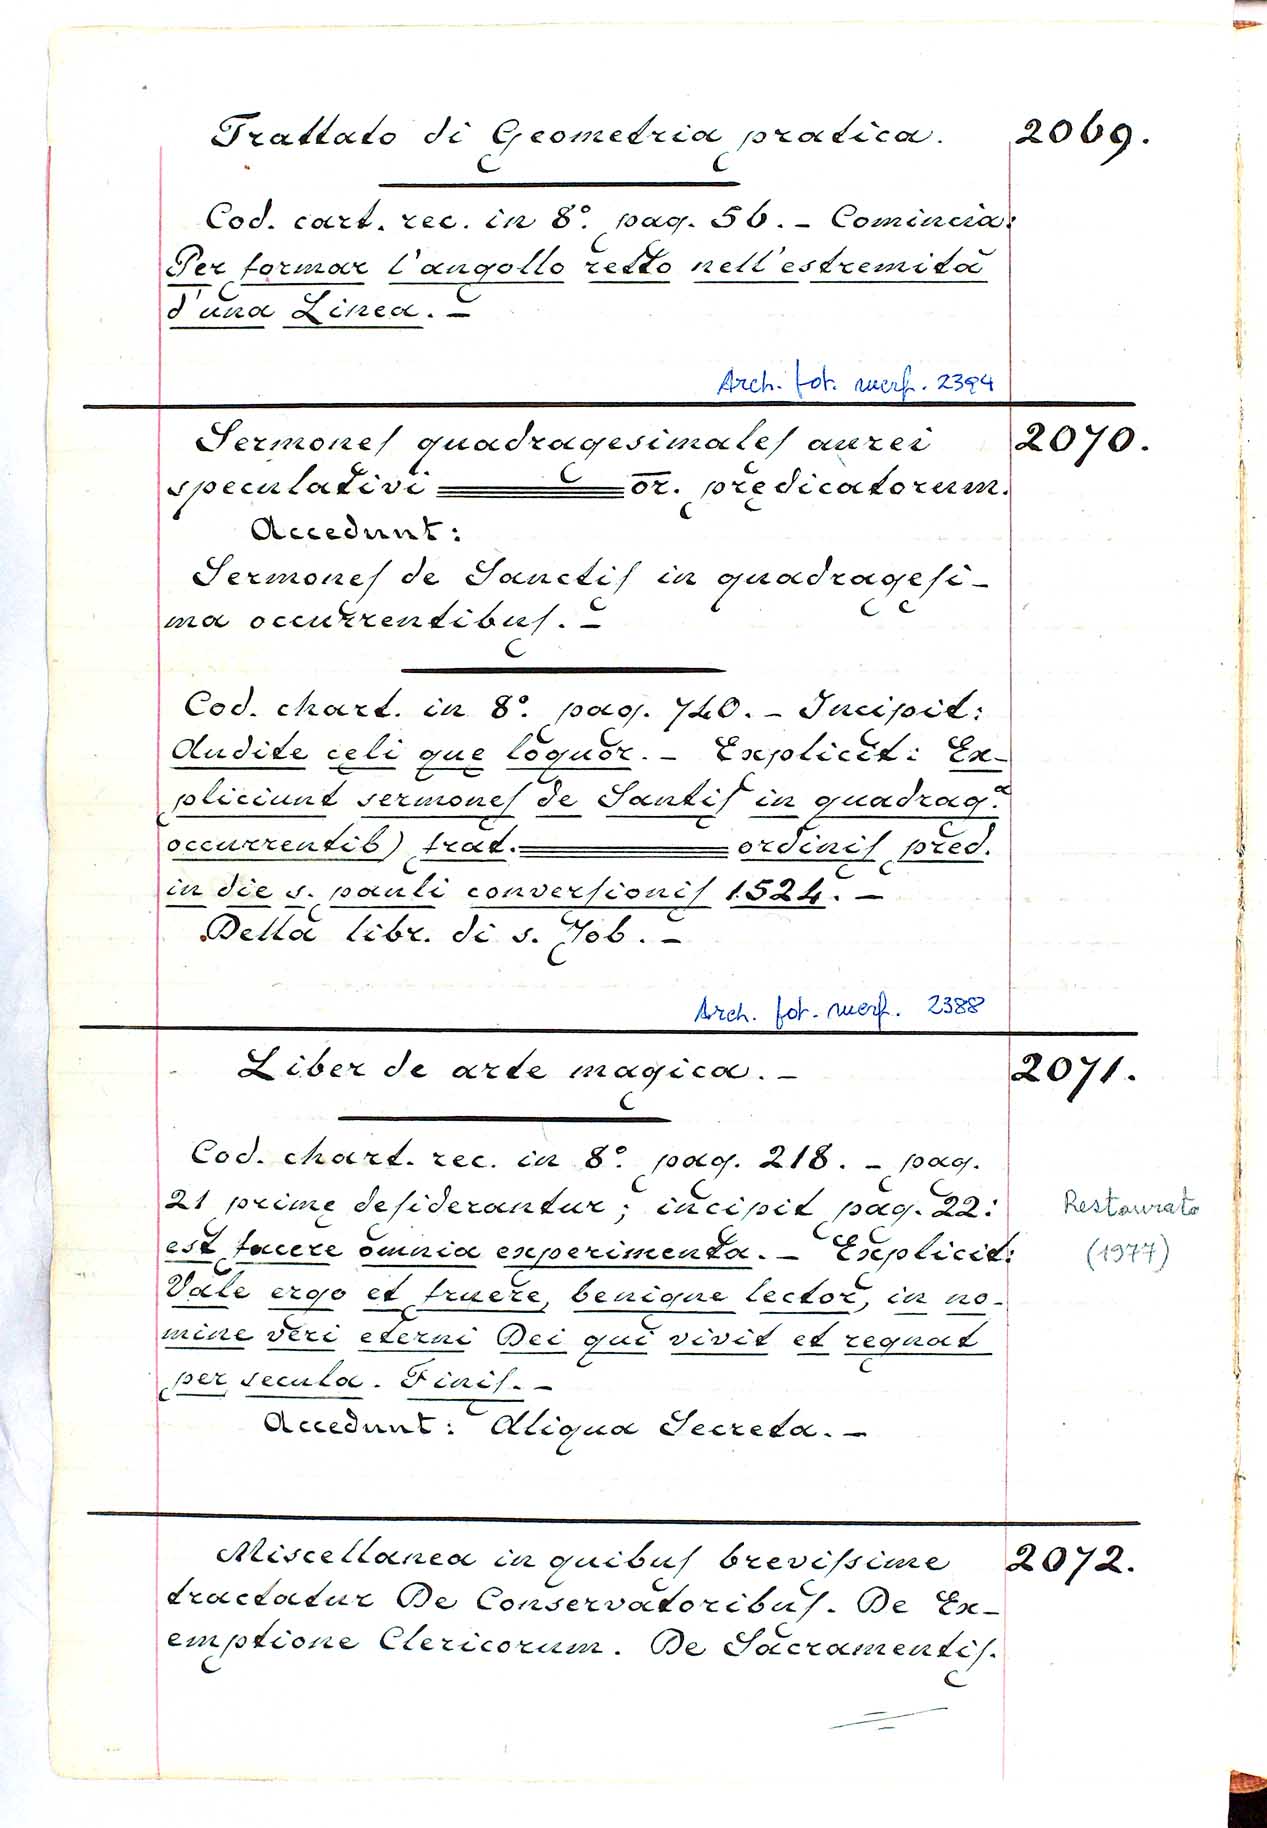 Trattato di Geometria pratica. 2069.
Cod. cart. rec. in 8°. pag. 56. – Comincia:
Per formar l'angollo retto nell'estremità
d'una Linea. –
Arch. fot. merf. 2394
Sermones quadragesimales aurei 2070.
speculativi ═══ or. predicatorum.
Accedunt:
Sermones de Sanctis in quadragesi-
ma occurrentibus. –
Cod. chart. in 8°. pag. 740. – Incipit:
Audite celi que loquor. – Explicit: Ex-
pliciunt sermones de Santis in quadrag.ª
occurrentib) frat. ═══ ordinis pred.
in die s. pauli conversionis 1524. –
Della libr. di s. Job. –
Arch. fot. merf. 2388
Liber de arte magica. – 2071.
Cod. chart. rec. in 8°. pag. 218. – pag.
21 prime desiderantur; incipit pag. 22:
est facere omnia experimenta. – Explicit:
Vale ergo et fruere, benigne lector, in no-
mine veri eterni Dei qui vivit et regnat
per secula. Finis. –
Accedunt: Aliqua Secreta. –
Restaurato
(1977)
Miscellanea in quibus brevissime 2072.
tractatur De Conservatoribus. De Ex-
emptione Clericorum. De Sacramentis.